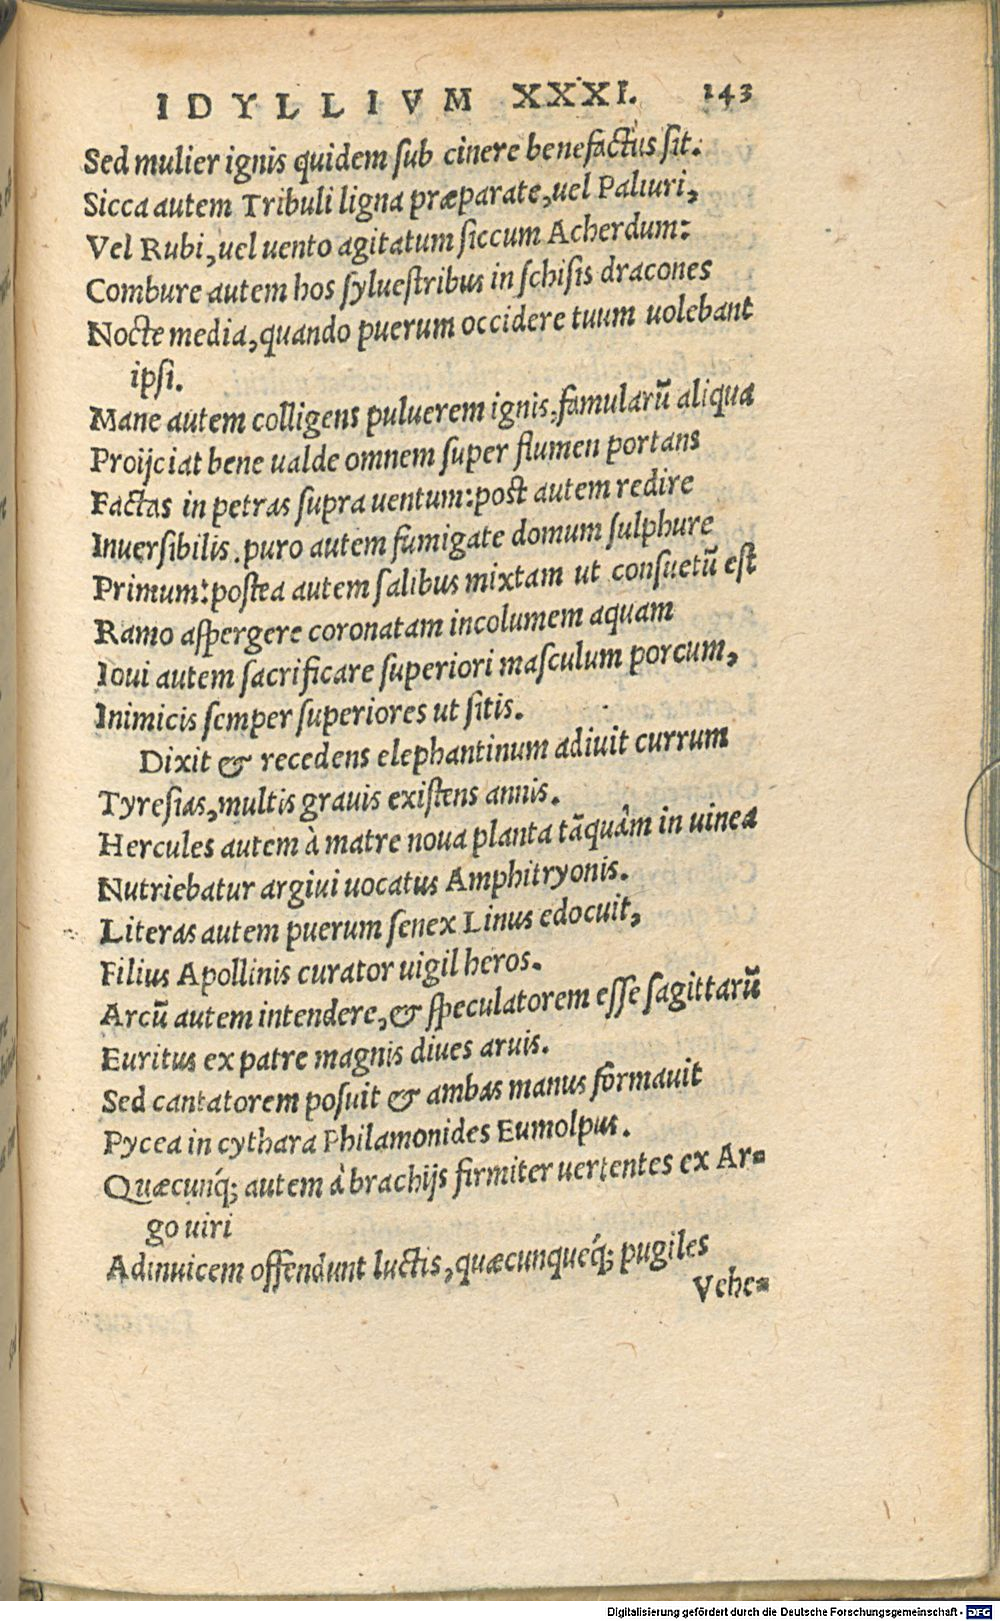 IDYLLIVM XXXI. 143
Sed mulier ignis quidem sub cinere benefactus sit.
Sicca autem Tribuli ligna præparate, uel Paliuri,
Vel Rubi, uel uento agitatum siccum Acherdum:
Combure autem hos syluestribus in schisis dracones
Nocte media, quando puerum occidere tuum uolebant
ipsi.
Mane autem colligens puluerem ignis, famularū aliqua
Proijciat bene ualde omnem super flumen portans
Factas in petras supra uentum: post autem redire
Inuersibilis. puro autem fumigate domum sulphure
Primum: postea autem salibus mixtam ut consuetū est
Ramo aspergere coronatam incolumem aquam
Ioui autem sacrificare superiori masculum porcum,
Inimicis semper superiores ut sitis.
Dixit & recedens elephantinum adiuit currum
Tyresias, multis grauis existens annis.
Hercules autem à matre noua planta tāquâm in uinea
Nutriebatur argiui uocatus Amphitryonis.
Literas autem puerum senex Linus edocuit,
Filius Apollinis curator uigil heros.
Arcū autem intendere, & speculatorem esse sagittarū
Euritus ex patre magnis diues aruis.
Sed cantatorem posuit & ambas manus formauit
Pycea in cythara Philamonides Eumolpus.
Quæcunq́; autem à brachijs firmiter uertentes ex Ar-
go uiri
Adinuicem offendunt luctis, quæcunqueq́; pugiles
Vehe-
Digitalisierung gefördert durch die Deutsche Forschungsgemeinschaft - DFG